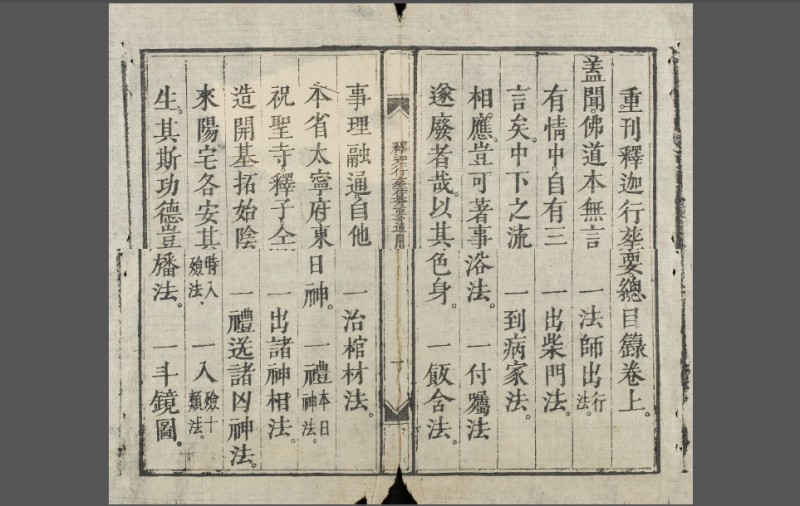 重刊釋迦行塟要總目錄卷上。
蓋聞佛道本無言 一法師出行法。
有情中自有三 一出柴門法。
言矣。中下之流 一到病家法。
相應。豈可著事浴法。 一付囑法
遂廢者哉。以其色身。 一飯含法。
釋迦行塟纂要通用 一
事理融通自他 一治棺材法。
本省太寧府東日神。 一禮本日神法。
祝聖寺釋子仝 一出諸神相法。
造開基拓始陰 一禮送諸凶神法。
來陽宅各安其時入殮法。 一入殮十類法。
生。其斯功德豈旛法。 一斗鏡圖。